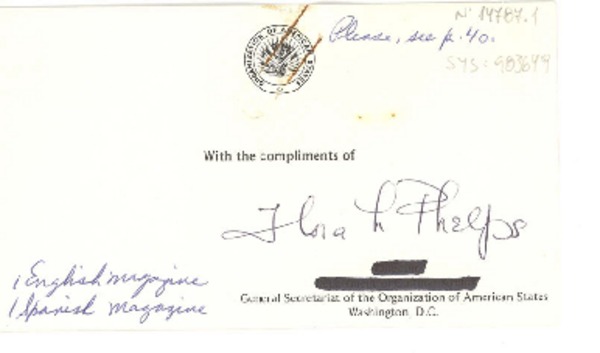 Nº 14787.1
Please, see p. 40.
SYS: 983649
ORGANIZATION OF AMERICAN STATES
With the compliments of
Flora L Phelps
1 English magazine
1 Spanish magazine
General Secretariat of the Organization of American States
Washington, D.C.